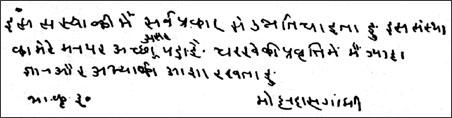 इस संस्थाकी मैं सर्व प्रकार से उन्नति चाहता हुं इस संस्था
का मेरे मनपर अच्छा असर पड़ा है. चरखेकी प्रवृत्तिमें मैं ज्यादा
ज्ञान और अभ्यासकी आशा रखता हुं
मोहनदास गांधी